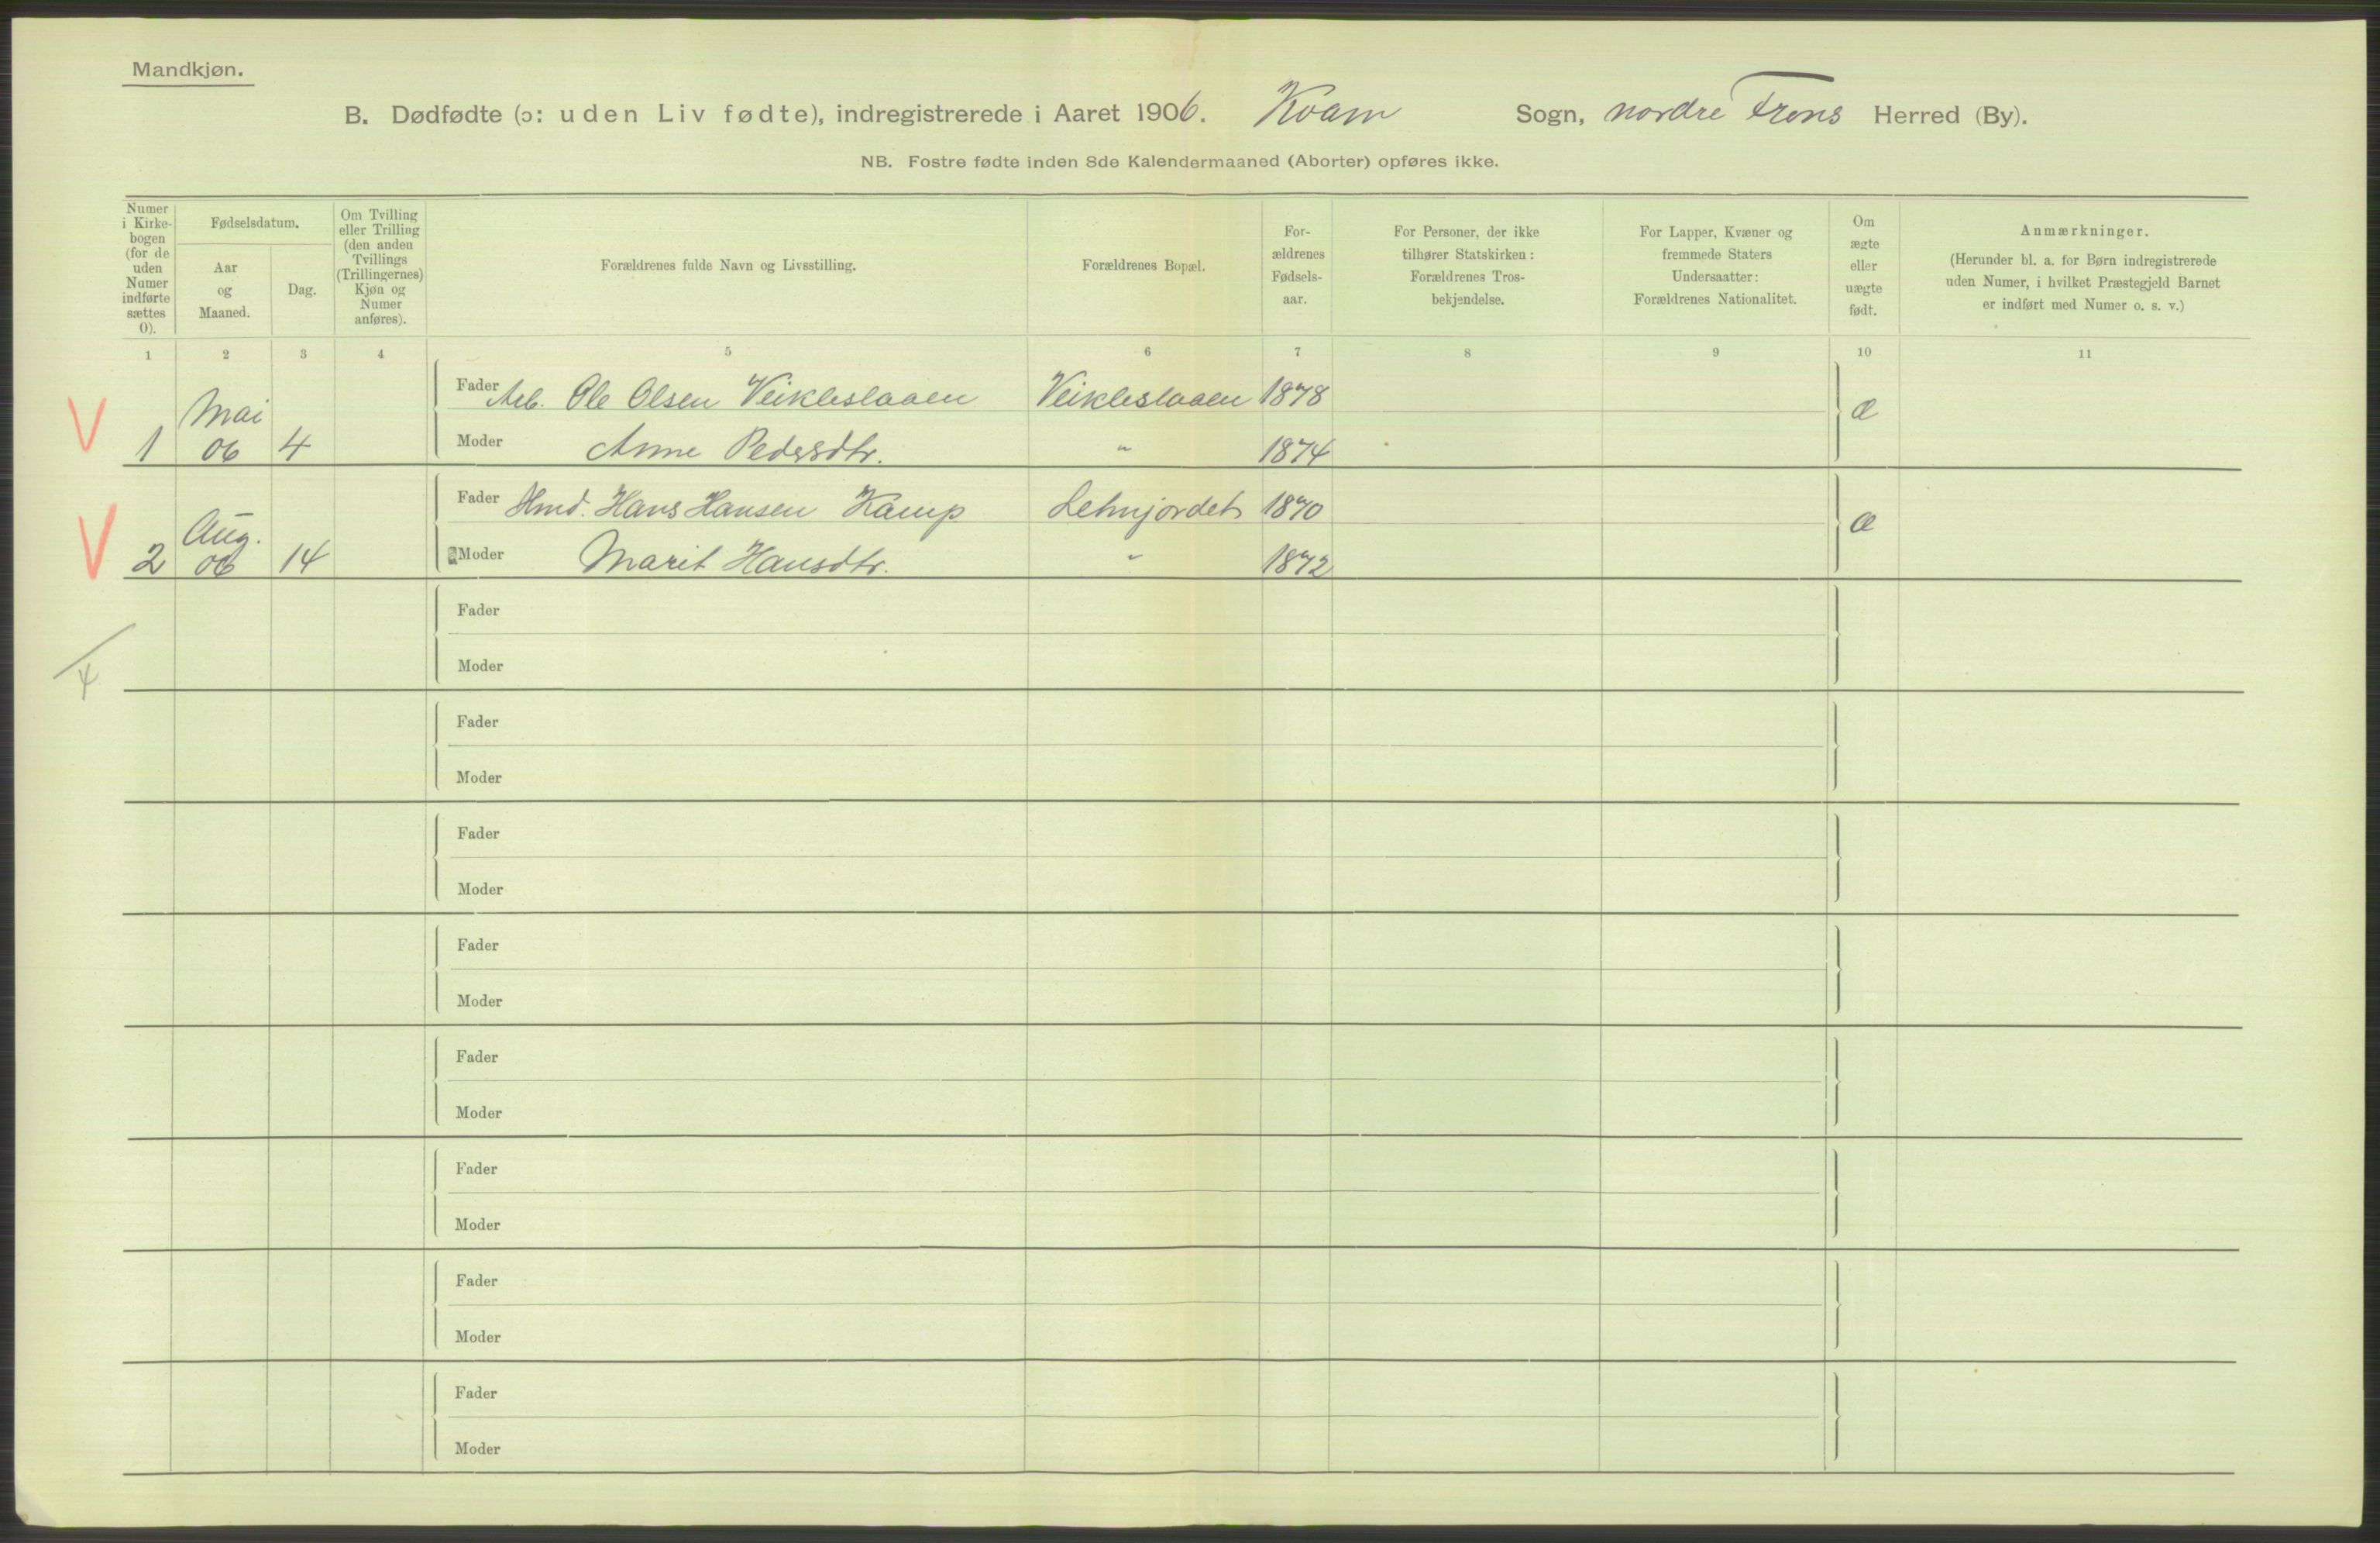 Mandkjøn.
B. Dødfødte (ɔ: uden Liv fødte), indregistrerede i Aaret 1906. Kvam Sogn, nordre Frons Herred (By).
NB. Fostre fødte inden 8de Kalendermaaned (Aborter) opføres ikke.
Numer i Kirkebogen (for de uden Numer indførte sættes 0).
Fødselsdatum.
Aar og Maaned.
Dag.
Om Tvilling eller Trilling (den anden Tvillings (Trillingernes) Kjøn og Numer anføres).
Forældrenes fulde Navn og Livsstilling.
Forældrenes Bopæl.
Forældrenes Fødselsaar.
For Personer, der ikke tilhører Statskirken: Forældrenes Trosbekjendelse.
For Lapper, Kvæner og fremmede Staters Undersaatter: Forældrenes Nationalitet.
Om ægte eller uægte født.
Anmærkninger.
(Herunder bl. a. for Børn indregistrerede uden Numer, i hvilket Præstegjeld Barnet er indført med Numer o. s. v.)
1 2 3 4 5 6 7 8 9 10 11
V 1 Mai 06 4
Fader Arb. Ole Olsen Veikleslaaen Veikleslaaen 1878 æ
Moder Anne Pedersdtr. " 1874
V 2 Aug. 06 14
Fader Hmd. Hans Hansen Kamp 1870 æ
Moder Marit Hansdtr. " 1872
Fader
Moder
4
Fader
Moder
Fader
Moder
Fader
Moder
Fader
Moder
Fader
Moder
Fader
Moder
Fader
Moder